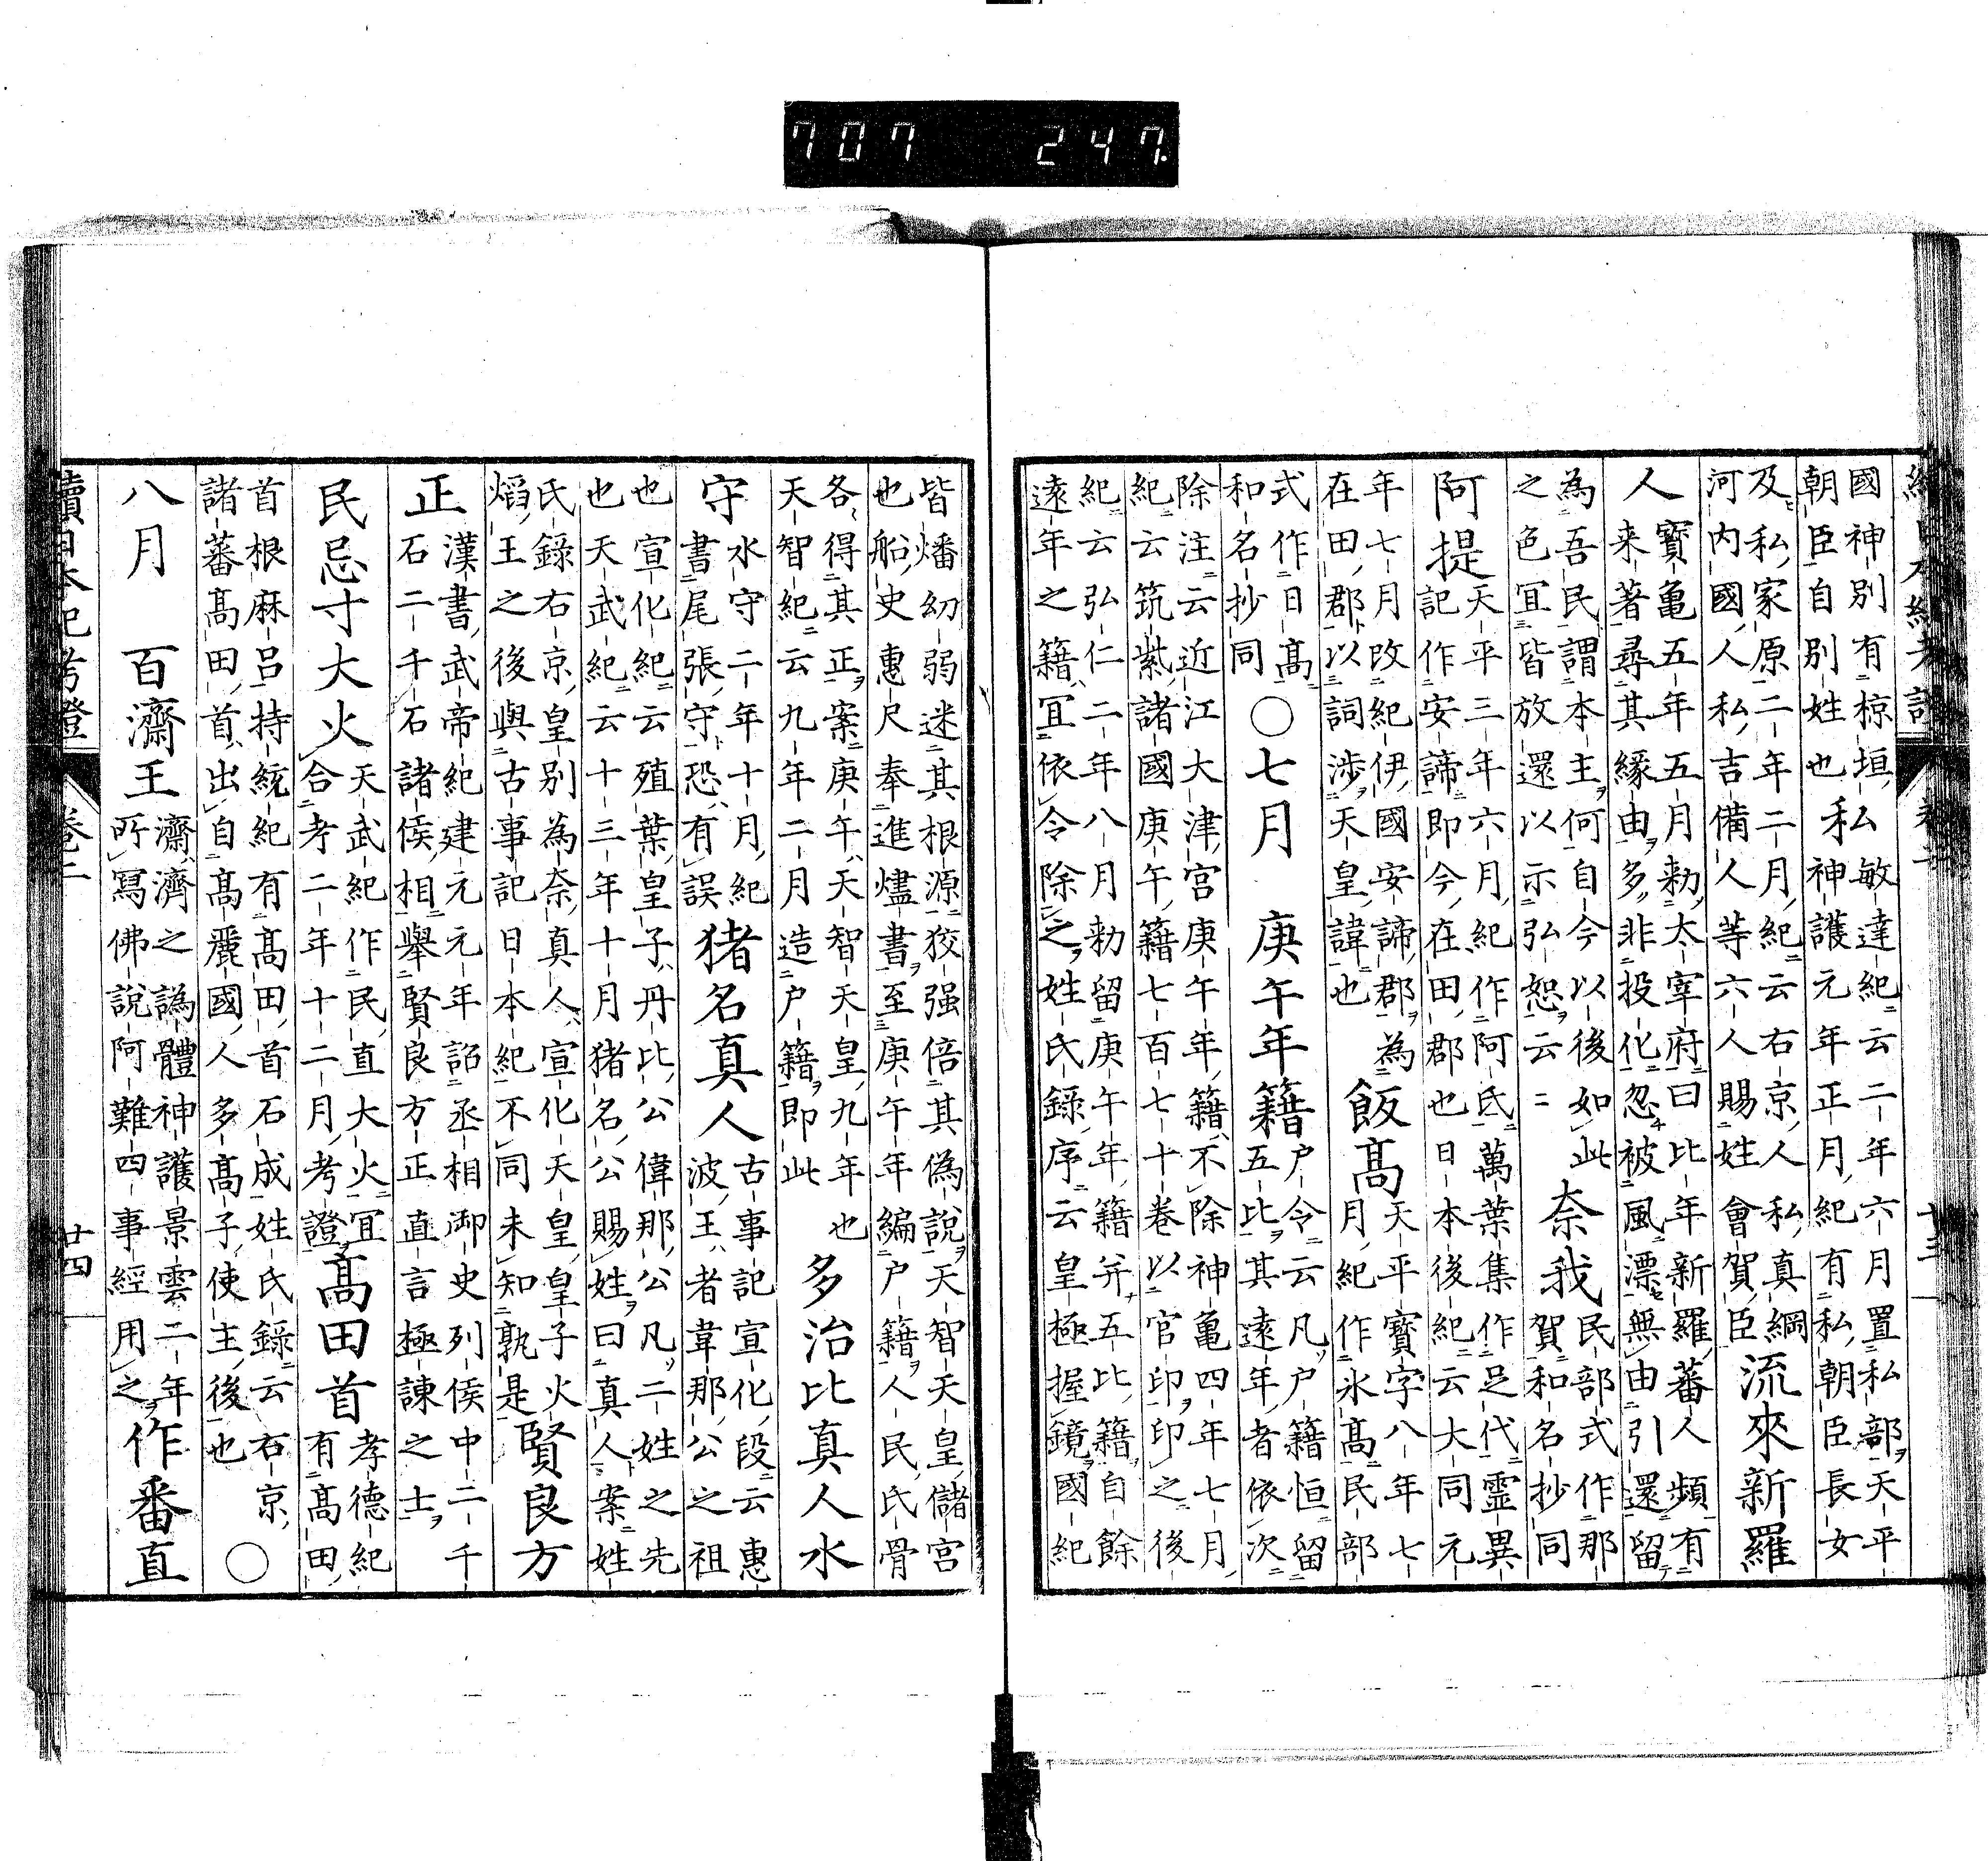 續日本紀考證 卷二 十三
國神別有椋垣朝臣自別姓也私敏達紀云二年六月置私部天平神護元年正月紀有私朝臣長女
及私家原二年二月紀云右京人私真綱河内國人私吉備人等六人賜姓會賀臣流來新羅
人寶亀五年五月勅太宰府曰比年新羅蕃人頻有来著尋其縁由多非投化忽被風漂無由引還留
為吾民謂本主何自今以後如此之色宜皆放還以示弘恕云〻奈我民部式作那賀和名抄同
阿提天平三年六月紀作阿氐萬葉集作足代霊異記作安諦即今在田郡也日本後紀云大同元
年七月改紀伊國安諦郡為在田郡以詞渉天皇諱也飯髙天平寶字八年七月紀作氷髙民部
式作日髙和名抄同○七月 庚午年籍戸令云凡戸籍恒留五比其遠年者依次
除注云近江大津宮庚午年籍不除神亀四年七月紀云筑紫諸國庚午籍七百七十巻以官印印之後
紀云弘仁二年八月勅留庚午年籍并五比籍自餘遠年之籍宜依令除之姓氏録序云皇極握鏡國紀
皆燔幼弱迷其根源狡强倍其偽説天智天皇儲宮也船史惠尺奉進燼書至庚午年編戸籍人民氏骨
各得其正案庚午天智天皇九年也天智紀云九年二月造戸籍即此多治比真人水
守水守二年十月紀書尾張守恐有誤猪名真人古事記宣化段云惠波王者韋那公之祖
也宣化紀云殖葉皇子丹比公偉那公凡二姓之先也天武紀云十三年十月猪名公賜姓曰真人案姓
氏録右京皇別為奈真人宣化天皇皇子火焔王之後與古事記日本紀不同未知孰是賢良方
正漢書武帝紀建元元年詔丞相御史列侯中二千石二千石諸侯相舉賢良方正直言極諫之士
民忌寸大火天武紀作民直大火宜合考二年十二月考證髙田首孝德紀有髙田
首根麻呂持統紀有髙田首石成姓氏録云右京諸蕃髙田首出自髙麗國人多髙子使主後也○
八月 百濟王濟濟之譌體神護景雲二年所寫佛説阿難四事經用之作番直
續日本紀考證 卷二 廿四
707 247.